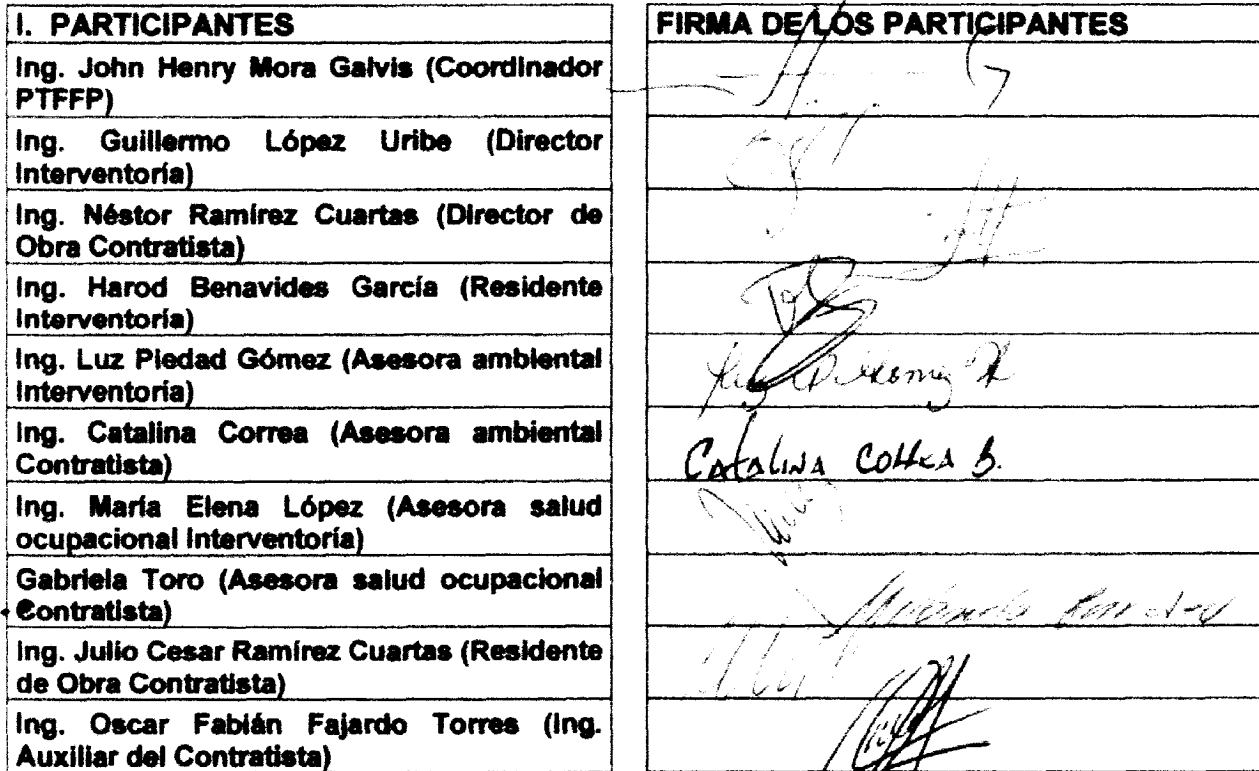 I. PARTICIPANTES
FIRMA DE LOS PARTICIPANTES
Ing. John Henry Mora Galvis (Coordinador
PTFFP)
Ing. Guillermo López Uribe (Director
Interventoría)
Ing. Néstor Ramírez Cuartas (Director de
Obra Contratista)
Ing. Harod Benavides García (Residente
Interventoría)
Ing. Luz Piedad Gómez (Asesora ambiental
Interventoría)
Ing. Catalina Correa (Asesora ambiental
Contratista)
CATALINA CORREA B.
Ing. María Elena López (Asesora salud
ocupacional Interventoría)
Gabriela Toro (Asesora salud ocupacional
Contratista)
Ing. Julio Cesar Ramírez Cuartas (Residente
de Obra Contratista)
Ing. Oscar Fabián Fajardo Torres (Ing.
Auxiliar del Contratista)